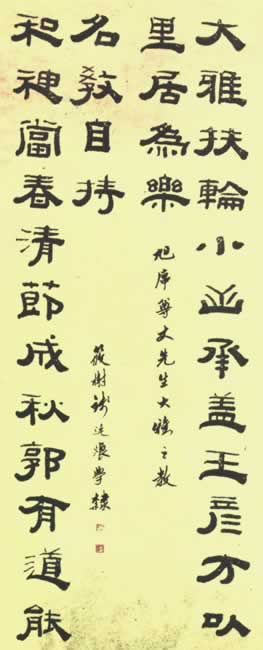 大雅扶輪小山承盖王彥方以
里居為樂
尊丈先生大雅之教
和神當春清節成秋郭有道能
名教自持
學隸